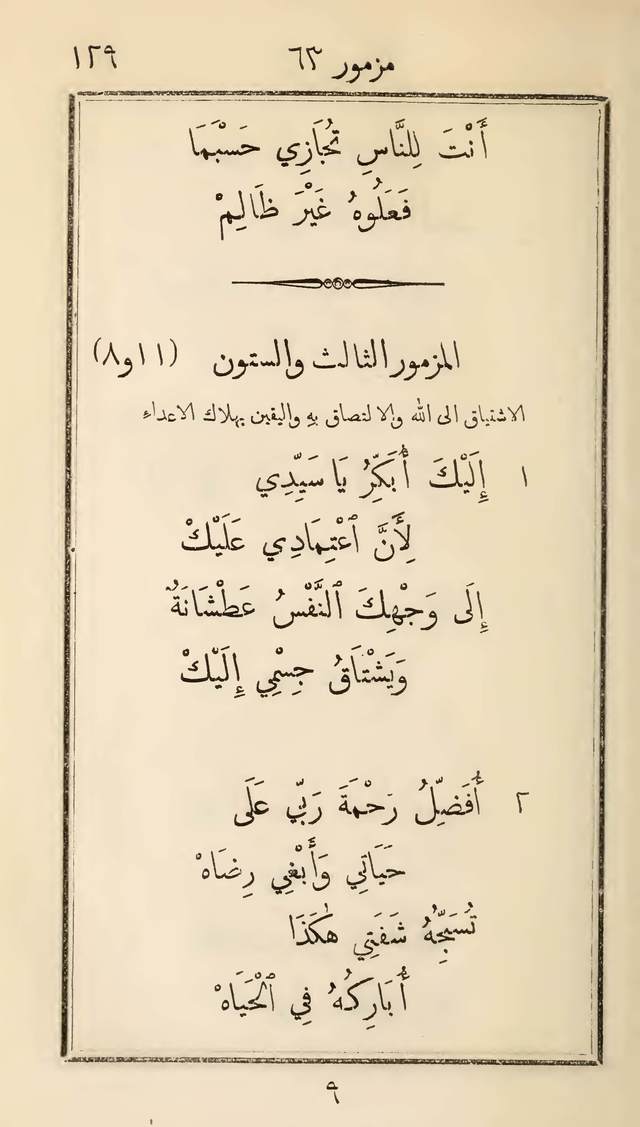 مزمور ٦٣ ١٢٩
أَنْتَ لِلنَّاسِ تُجَازِي حَسْبَمَا
فَعَلُوهُ غَيْرَ ظَالِمْ
المزمور الثالث والستون (١١ و٨)
الاشتياق الى الله والالتصاق بهِ واليقين بهلاك الاعداءِ
١ إِلَيْكَ أُبَكِّرُ يَا سَيِّدِي
لِأَنَّ ٱعْتِمَادِي عَلَيْكْ
إِلَى وَجْهِكَ ٱلنَّفْسُ عَطْشَانَةٌ
وَيَشْتَاقُ جِسْمِي إِلَيْكْ
٢ أُفَضِّلُ رَحْمَةَ رَبِّي عَلَى
حَيَاتِي وَأَبْغِي رِضَاهْ
تُسَبِّحُهُ شَفَتِي هٰكَذَا
أُبَارِكُهُ فِي ٱلْحَيَاهْ
٩